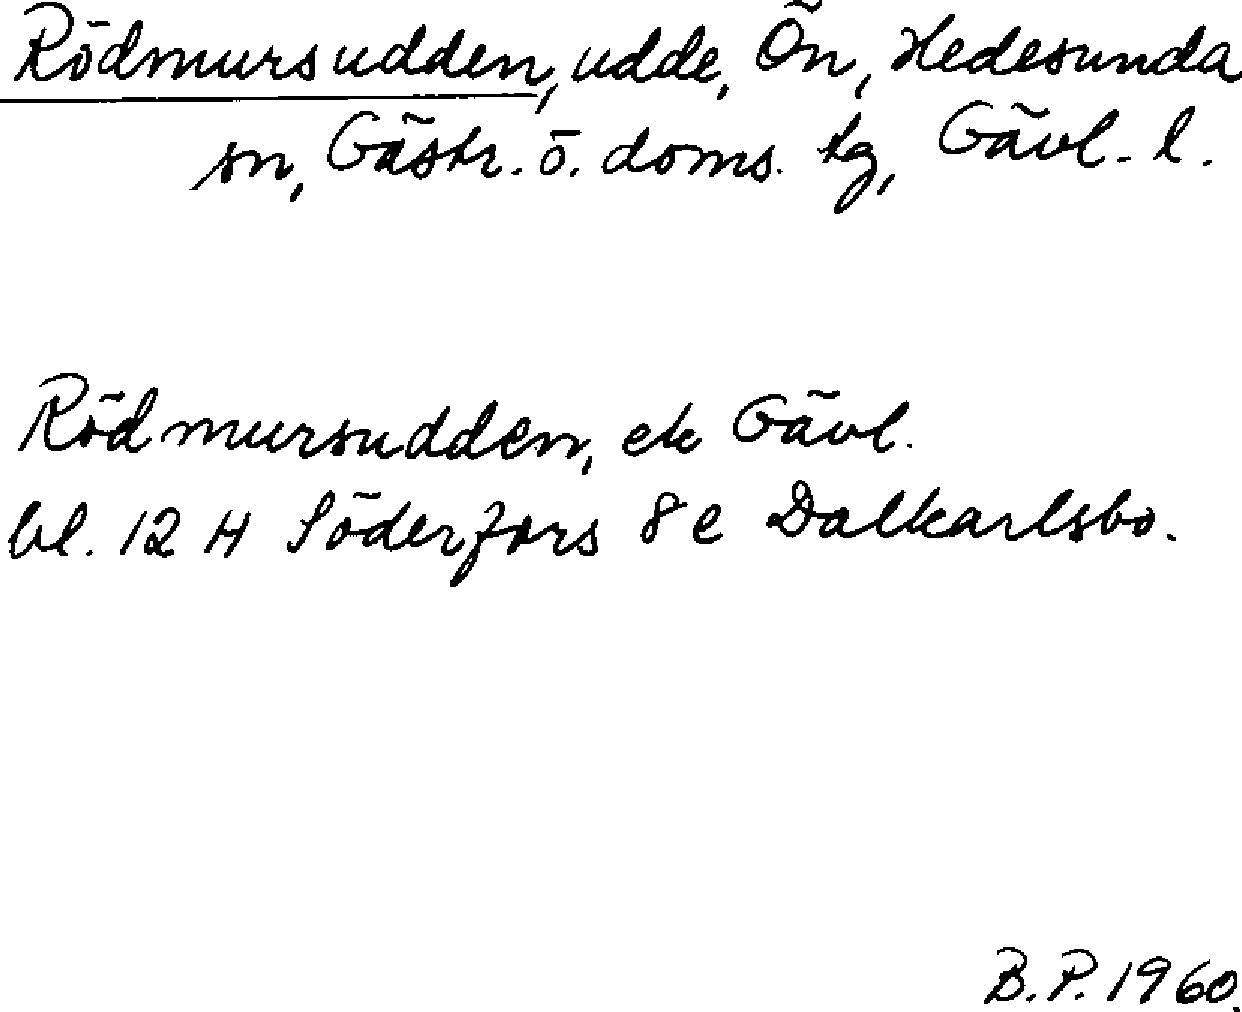 Rödmursudden, udde, Ön, Hedesunda
sn, Gästr. ö. doms. tg, Gävl. l.
Rödmursudden, ek Gävl.
bl. 12 H Söderfors 8 e Dalkarlsbo.
B.P. 1960.